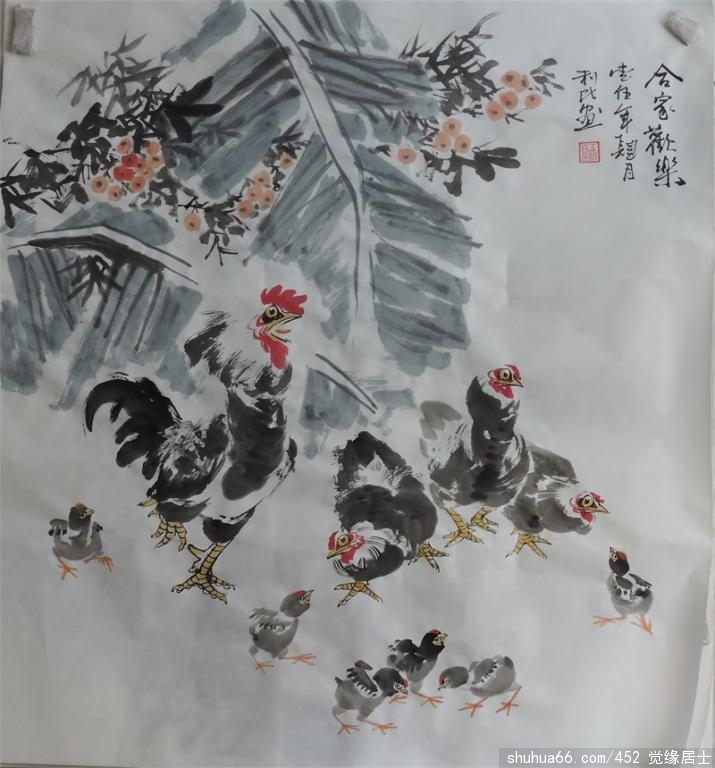 合家歡樂
壹伍年月
利画
shuhua66.com/452 觉缘居士